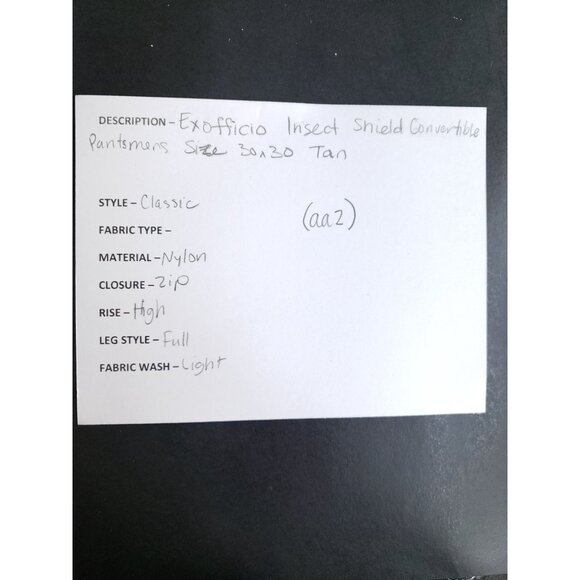 DESCRIPTION – Exofficio Insect Shield Convertible
Pantsmens Size 30x30 Tan
STYLE – Classic
(aa2)
FABRIC TYPE –
MATERIAL – Nylon
CLOSURE – Zip
RISE – High
LEG STYLE – Full
FABRIC WASH – Light